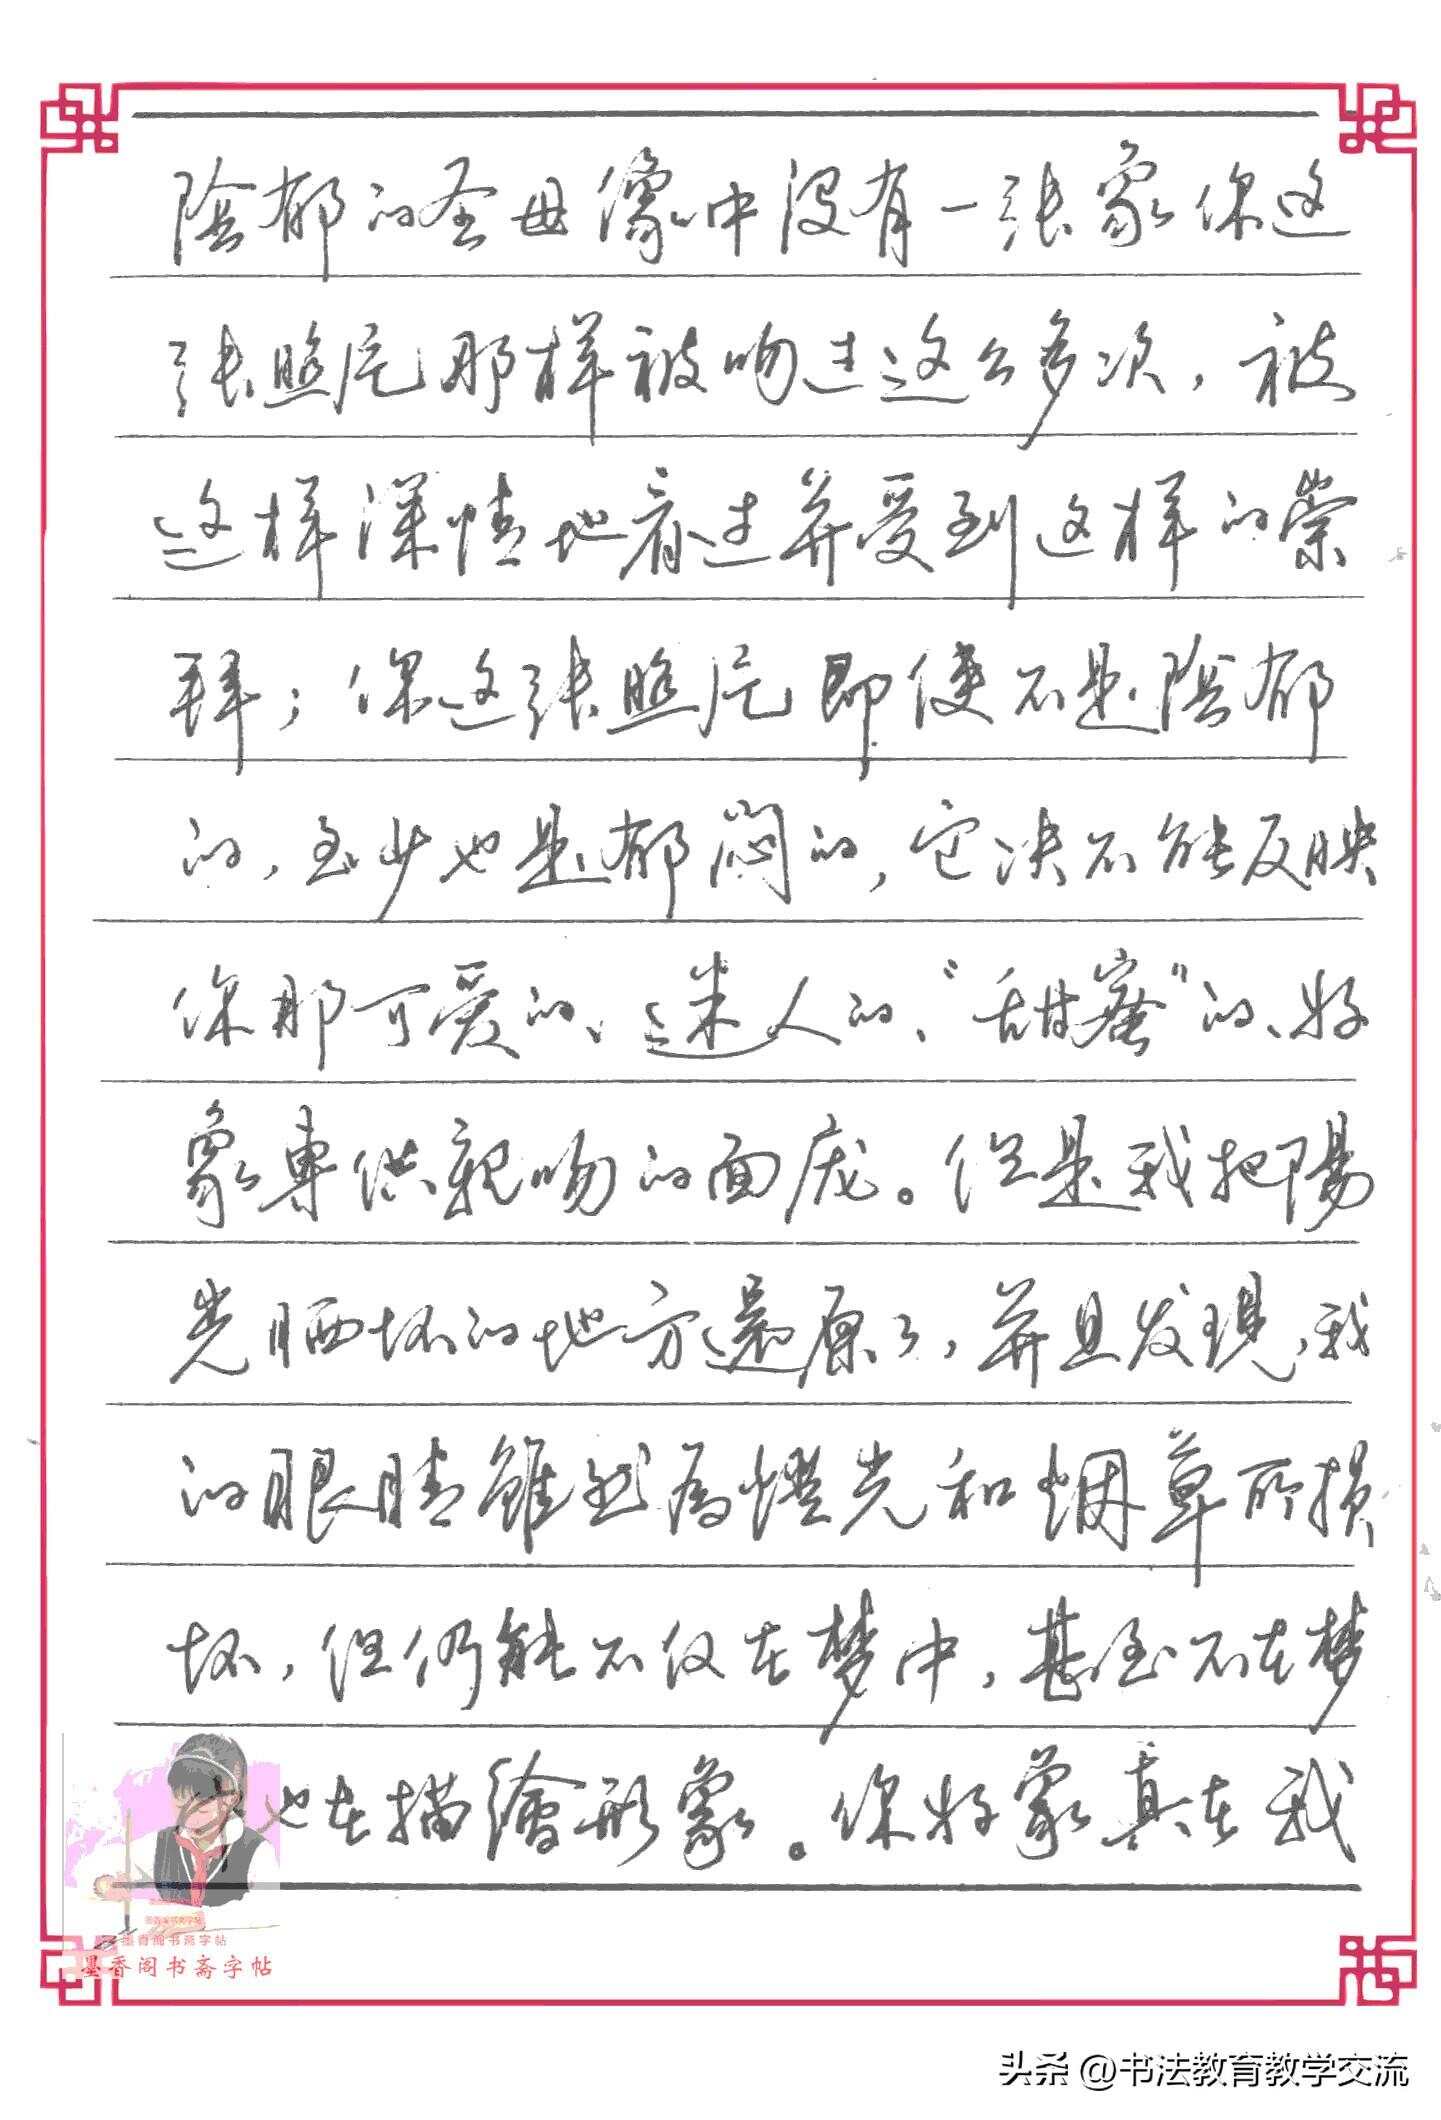 陰郁的圣母像中没有一张象你这
张照片那样被吻过这么多次，被
这样深情地看过并受到这样的崇
拜；你这张照片即使不是陰郁
的，至少也是郁闷的，它决不能反映
你那可爱的、迷人的、“甜蜜”的、好
象專供親吻的面庞。但是我把陽
光晒坏的地方還原了，并且发現，我
的眼睛雖然為燈光和烟草所損
坏，但仍能不仅在梦中，甚至不在梦
也在描繪形象。你好象真在我
墨香阁书斋字帖
墨香阁书斋字帖
头条 @书法教育教学交流